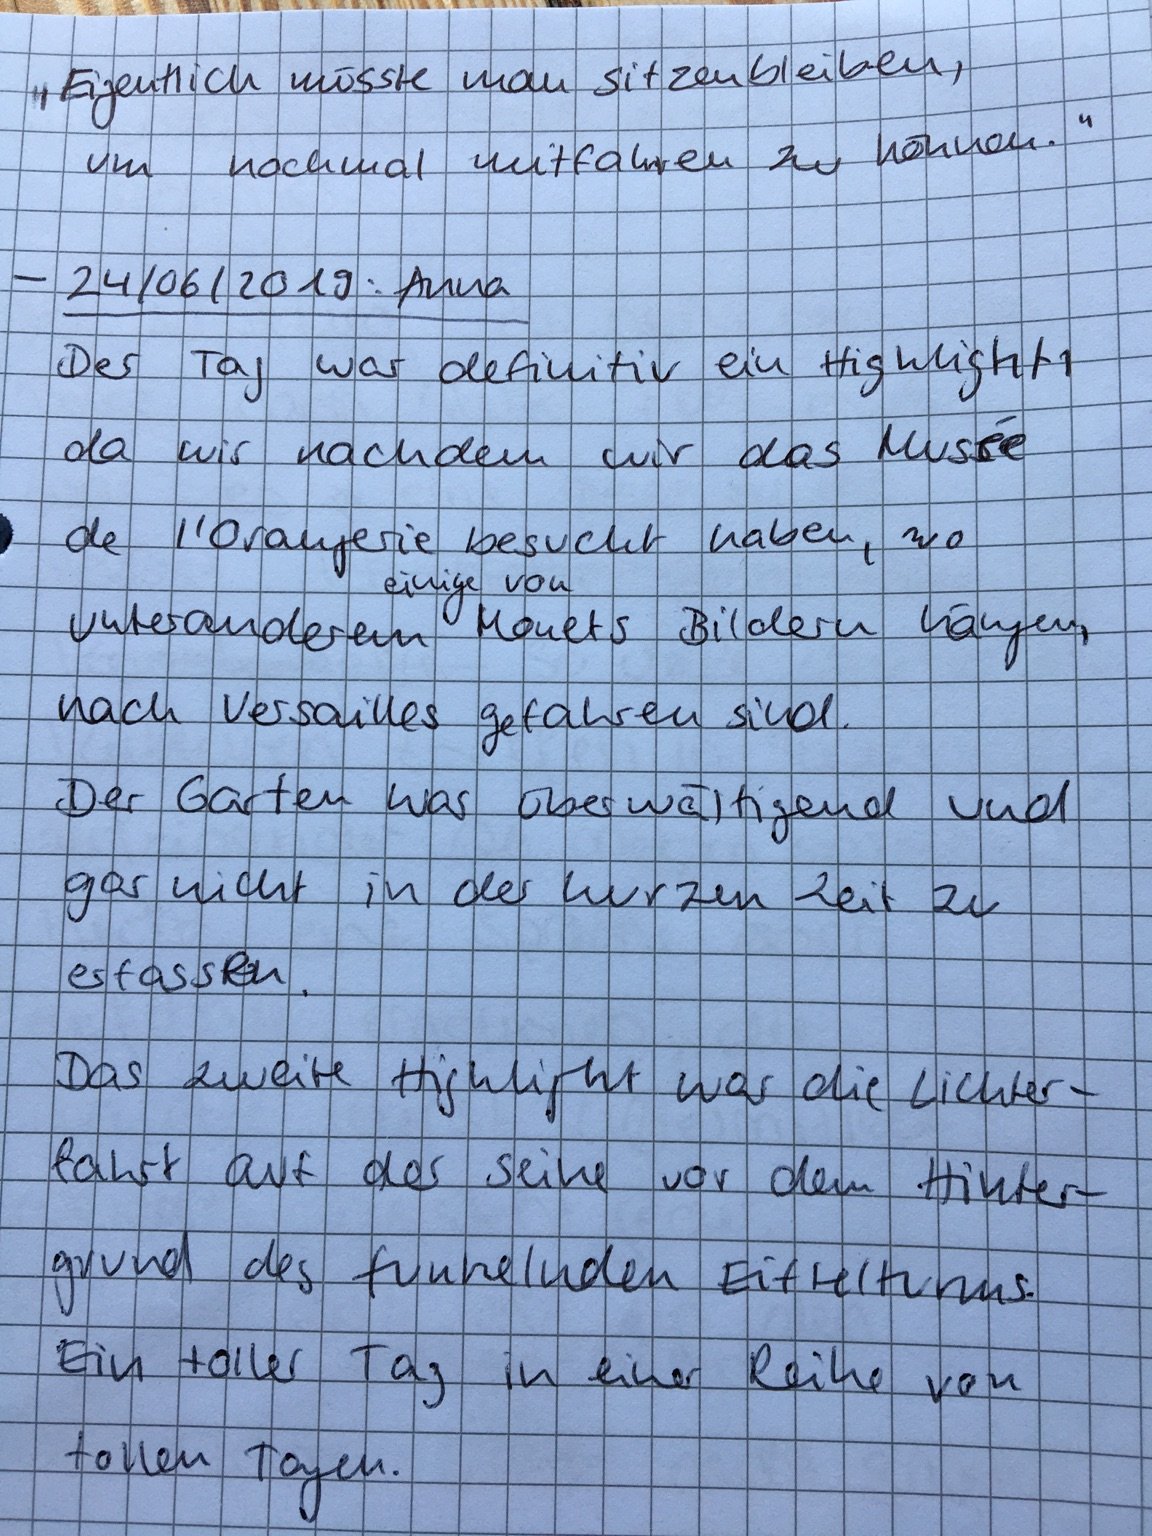 „Eigentlich müsste man sitzenbleiben,
um nochmal mitfahren zu können."
- 24/06/2019: Anna
Der Tag war definitiv ein Highlight,
da wir nachdem wir das Musée
de l'Orangerie besucht haben, wo
einige von
unteranderem Monets Bildern hängen,
nach Versailles gefahren sind.
Der Garten war überwältigend und
gar nicht in der kurzen Zeit zu
erfassen.
Das zweite Highlight war die Lichter-
fahrt auf der Seine vor dem Hinter-
grund des funkelnden Eiffelturms.
Ein toller Tag in einer Reihe von
tollen Tagen.